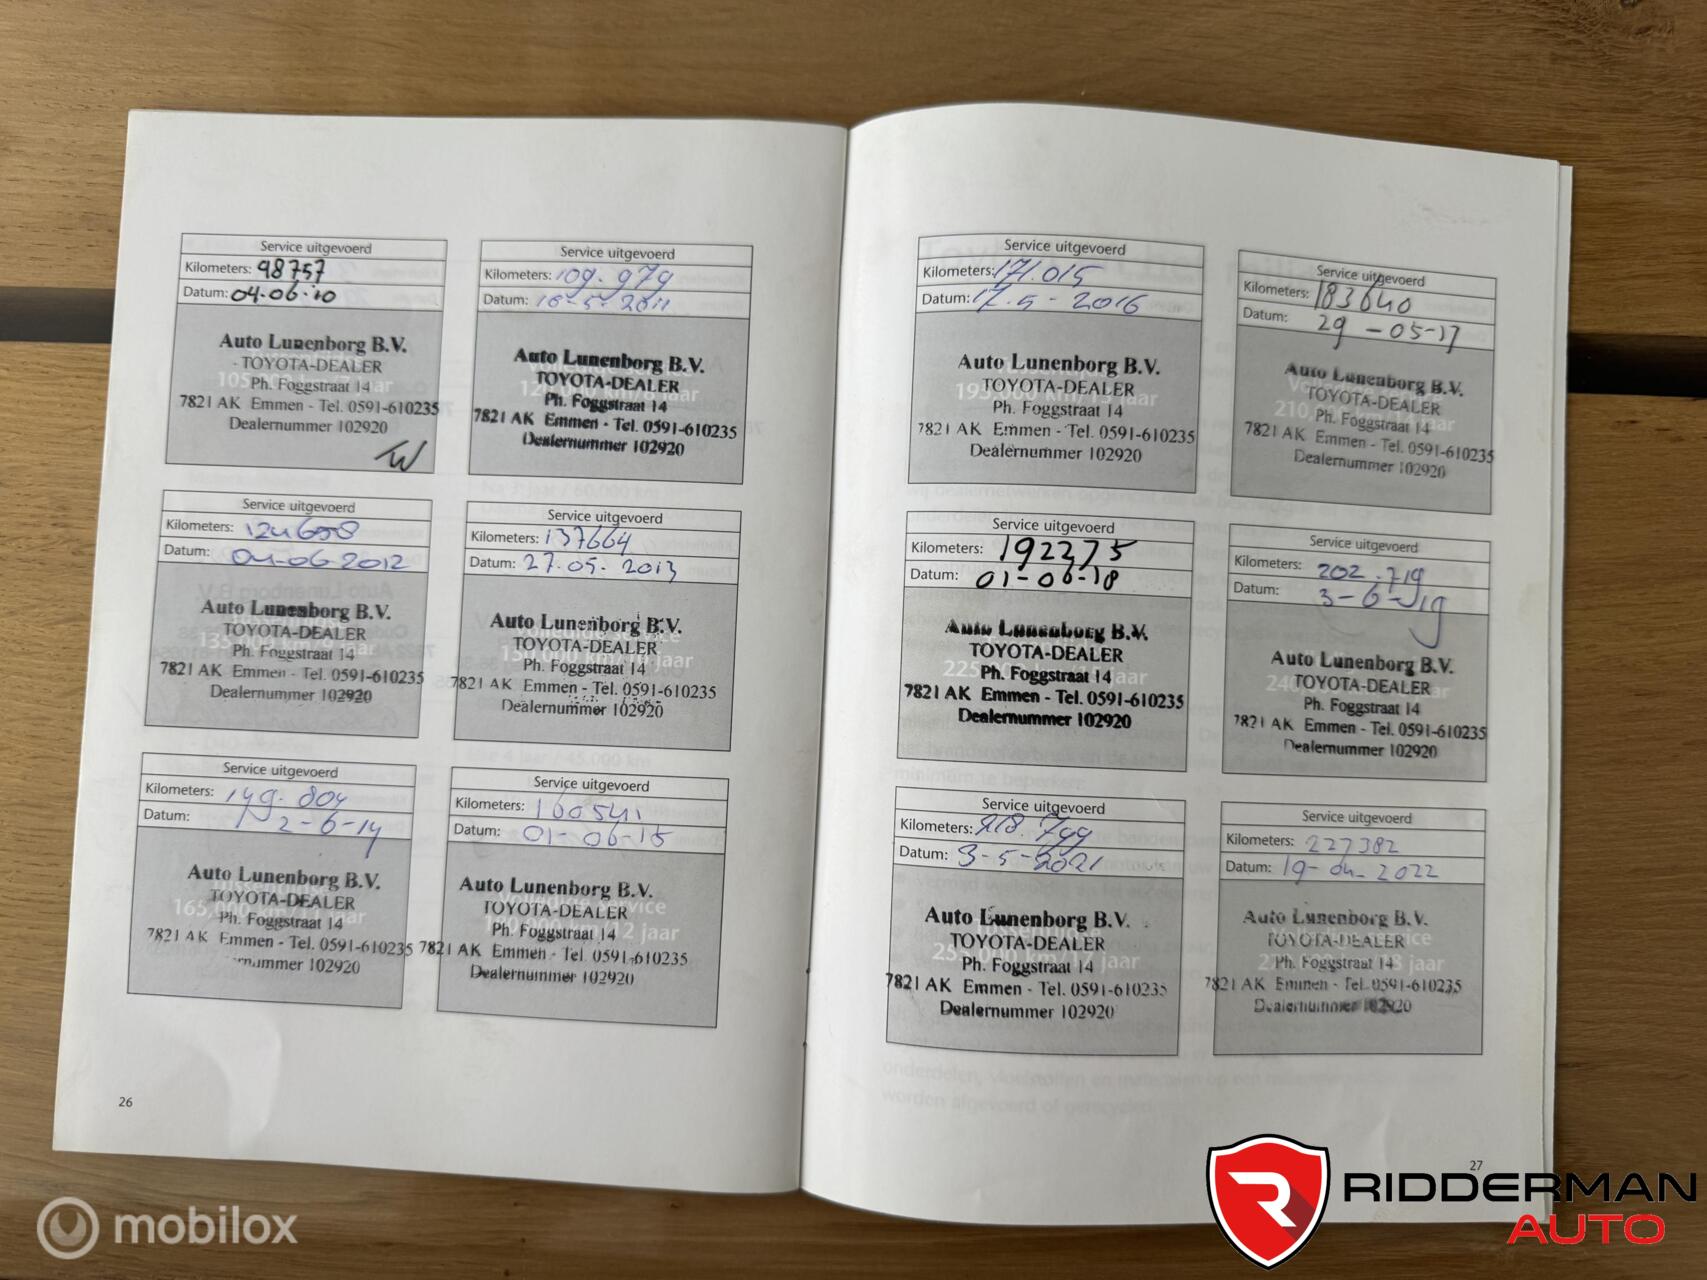 Service uitgevoerd
Kilometers: 98757
Datum: 04-06-10
Auto Lunenborg B.V.
TOYOTA-DEALER
105,000 km/7 jaar
Ph. Foggstraat 14
7821 AK Emmen - Tel. 0591-610235
Dealernummer 102920
Service uitgevoerd
Kilometers: 109.979
Datum: 16-5-2011
Auto Lunenborg B.V.
TOYOTA-DEALER
Ph. Foggstraat 14
7821 AK Emmen - Tel. 0591-610235
Dealernummer 102920
Service uitgevoerd
Kilometers: 124658
Datum: 04-06-2012
Auto Lunenborg B.V.
TOYOTA-DEALER
135,000 km/9 jaar
Ph. Foggstraat 14
7821 AK Emmen - Tel. 0591-610235
Dealernummer 102920
Service uitgevoerd
Kilometers: 137664
Datum: 27.05.2013
Auto Lunenborg B.V.
Volledige service
TOYOTA-DEALER
150,000 km/10 jaar
Ph. Foggstraat 14
7821 AK Emmen - Tel. 0591-610235
Dealernummer 102920
Service uitgevoerd
Kilometers: 149.804
Datum: 2-6-14
Auto Lunenborg B.V.
TOYOTA-DEALER
165,000 km/11 jaar
Ph. Foggstraat 14
7821 AK Emmen - Tel. 0591-610235
102920
Service uitgevoerd
Kilometers: 160541
Datum: 01-06-15
Auto Lunenborg B.V.
Volledige service
TOYOTA-DEALER
180,000 km/12 jaar
Ph. Foggstraat 14
7821 AK Emmen - Tel. 0591-610235
Dealernummer 102920
26
Service uitgevoerd
Kilometers: 171.015
Datum: 17-5-2016
Auto Lunenborg B.V.
TOYOTA-DEALER
195,000 km/13 jaar
Ph. Foggstraat 14
7821 AK Emmen - Tel. 0591-610235
Dealernummer 102920
Service uitgevoerd
Kilometers: 183640
Datum: 29-05-17
Auto Lunenborg B.V.
TOYOTA-DEALER
Ph. Foggstraat 14
7821 AK Emmen - Tel. 0591-610235
Dealernummer 102920
Service uitgevoerd
Kilometers: 192375
Datum: 01-06-18
Auto Lunenborg B.V.
TOYOTA-DEALER
Ph. Foggstraat 14
7821 AK Emmen - Tel. 0591-610235
Dealernummer 102920
Service uitgevoerd
Kilometers: 202.719
Datum: 3-6-19
Auto Lunenborg B.V.
TOYOTA-DEALER
Ph. Foggstraat 14
7821 AK Emmen - Tel. 0591-610235
Dealernummer 102920
Service uitgevoerd
Kilometers: 218.799
Datum: 3-5-2021
Auto Lunenborg B.V.
TOYOTA-DEALER
255,000 km/17 jaar
Ph. Foggstraat 14
7821 AK Emmen - Tel. 0591-610235
Dealernummer 102920
Service uitgevoerd
Kilometers: 227382
Datum: 19-04-2022
Auto Lunenborg B.V.
Volledige service
TOYOTA-DEALER
Ph. Foggstraat 14
7821 AK Emmen - Tel. 0591-610235
Dealernummer 102920
27
mobilox
RIDDERMAN
AUTO